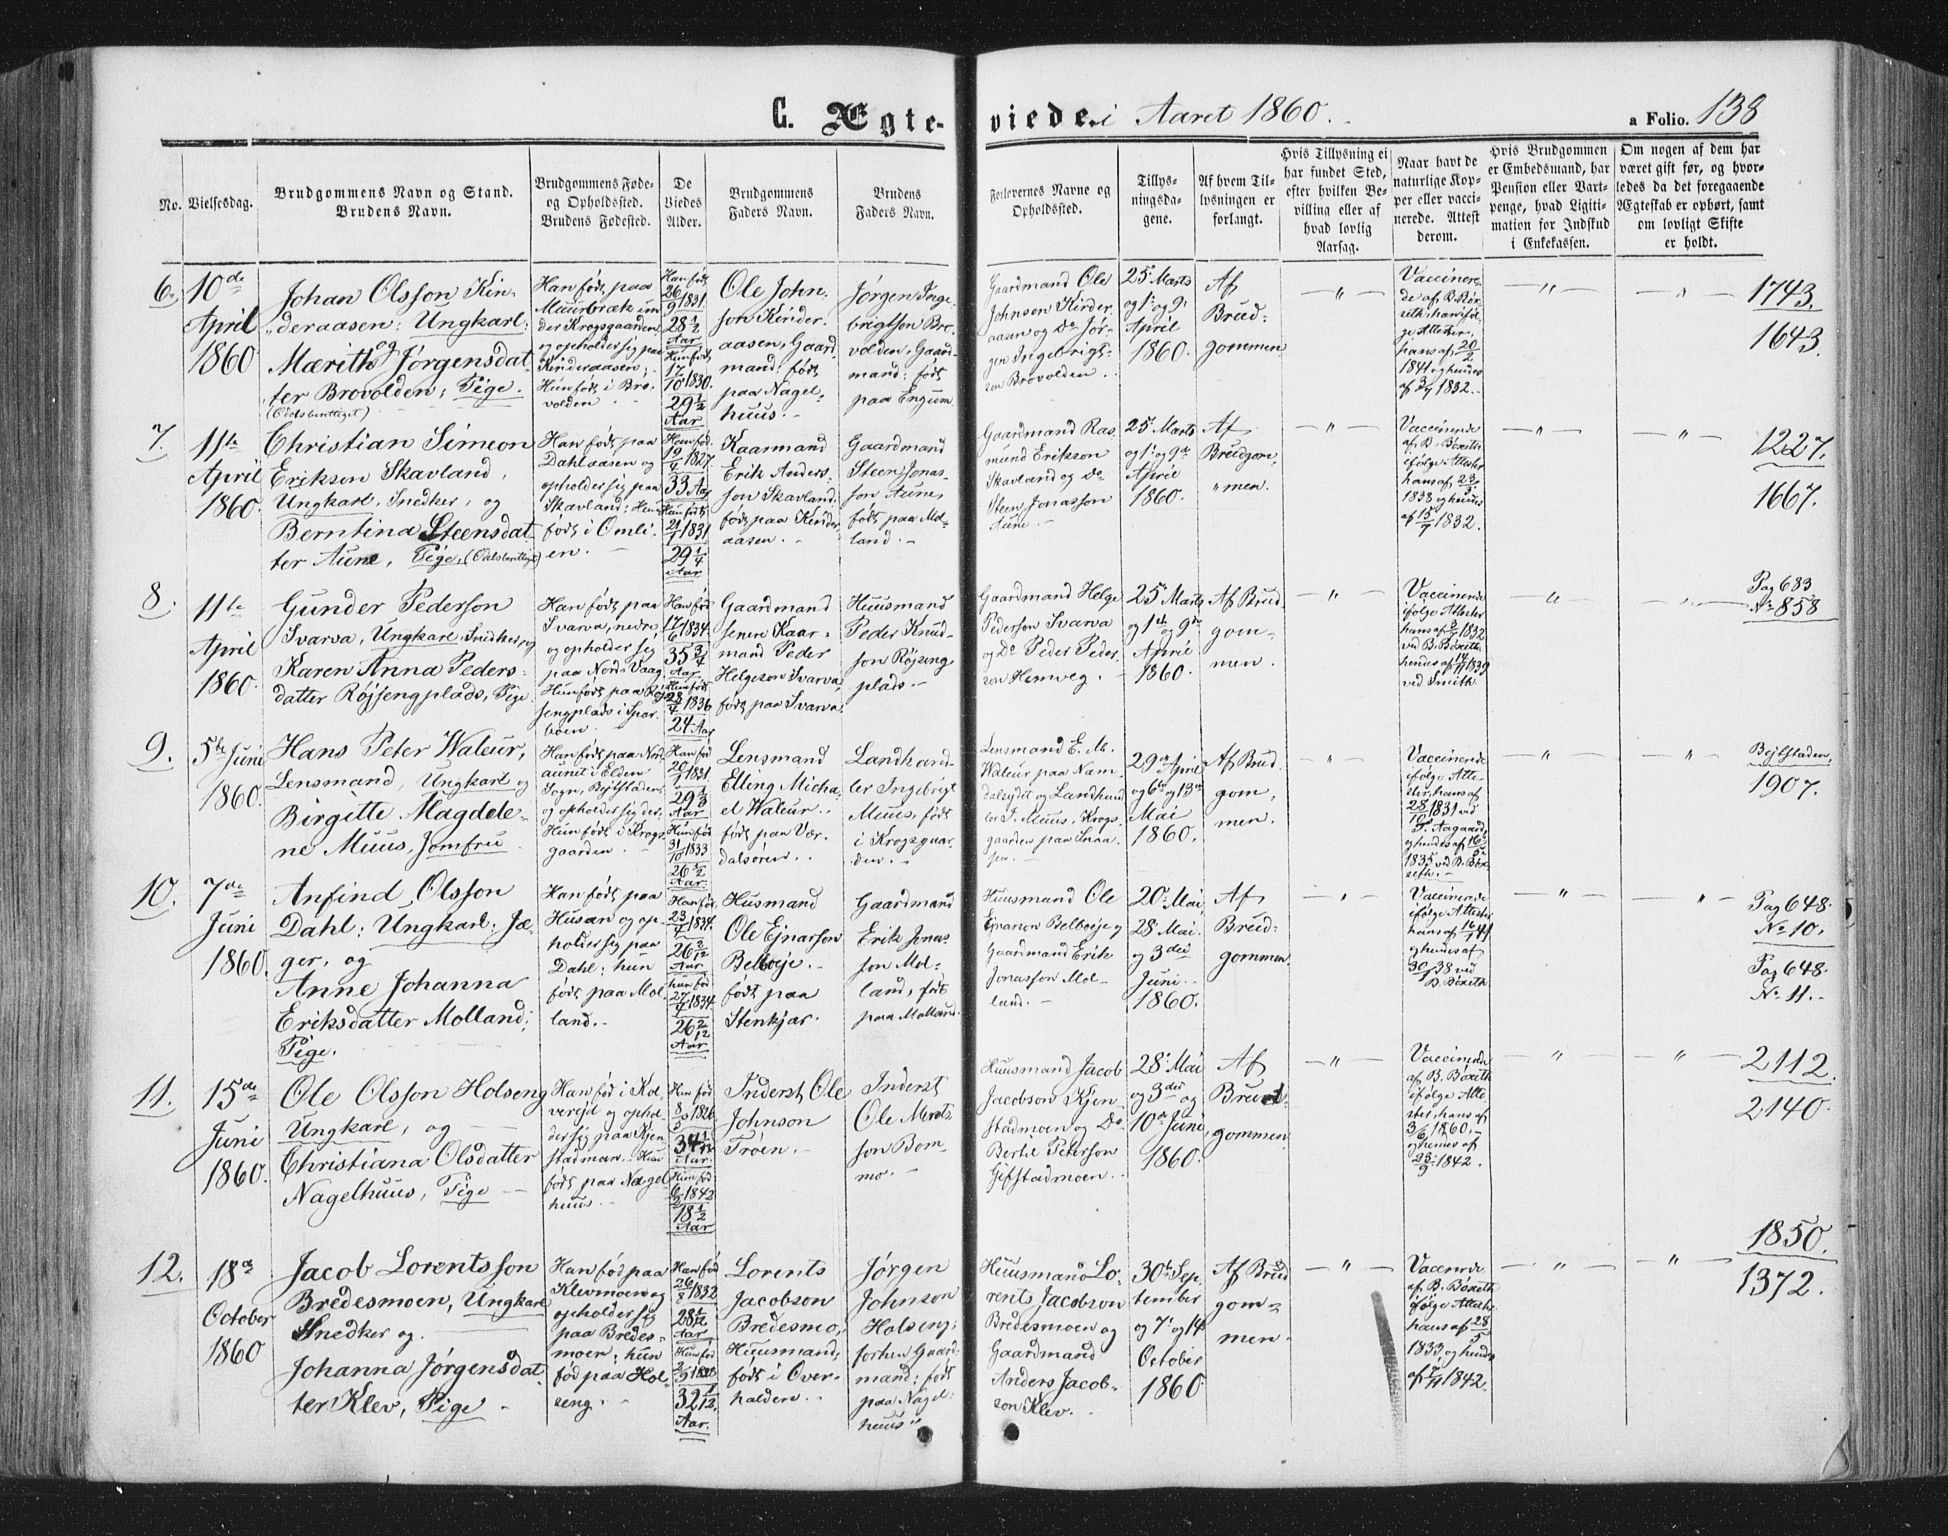 C. Ægte-
viede. i Aaret 1860.
a Folio. 138
No.
Vielsesdag.
Brudgommens Navn og Stand.
Brudens Navn.
Brudgommens Føde-
og Opholdssted.
Brudens Fødested.
De
Viedes
Alder.
Brudgommens
Faders Navn.
Brudens
Faders Navn.
Forlovernes Navne og
Opholdssted.
Tillys-
ningsda-
gene.
Af hvem Til-
lysningen er
forlangt.
Hvis Tillysning ei
har fundet Sted,
efter hvilken Be-
villing eller af
hvad lovlig
Aarsag.
Naar havt de
naturlige Kop-
per eller vacci-
nerede. Attest
derom.
Hvis Brudgommen
er Embedsmand, har
Pension eller Vart-
penge, hvad Ligiti-
mation for Indskud
i Enkekassen.
Om nogen af dem har
været gift før, og hvor-
ledes da det foregaaende
Ægteskab er ophørt, samt
om lovligt Skifte
er holdt.
6.
10de
April
1860
Johan Olsson Kin-
deraasen: Ungkarl:
og
Mærith Jørgensdat-
ter Brovolden; Pige.
Han født paa
Muurbræk un-
der Krogsgaarden
og opholder sig paa
Kinderaasen;
Hun født i Bro-
volden
Han født
26/9 1831
28 1/2
Aar
Hun født
17/10 1830.
29 1/2
Aar
Ole John-
son Kinder-
aasen, Gaard-
mand: født
paa Nagel-
huus.
Jørgen Inge-
brigtson Bro-
volden, Gaard-
mand: født
paa Engum
Gaardmand Ole
Johnson Kinder-
aasen og Do Jør-
gen Ingebrigt-
son Brovolden.
25 Marts
og 1 og 9
April
1860.
Af
Brud-
gommen
Vaccinere-
de af B. Bøx-
eth, han iføl-
ge Attester,
hans af 20/2
1841 og hendes
af 3/7 1832.
1743.
1643.
7.
11te
April
1860.
(Odelsberettiget)
Christian Simeon
Erikson Skavland,
Ungkarl, Snedker, og
Berntina Steensdat-
ter Aune, Pige, (Odelsberettiget)
Han født paa
Dahlaasen og
opholder sig paa
Skavland: Hun
født i Omli-
en.
Han fød
19/4 1827.
33 Aar
Hun født
21/1 1831
29 1/4
Aar
Kaarmand
Erik Anders-
son Skavland:
født paa Kinder-
aasen.
Gaardmand
Steen Jonas-
son Aune,
født paa Mol-
land.
Gaardmand Ras-
mund Erikson
Skavland og Do
Steen Jonasson
Aune.
25 Marts
og 1 og 9de
April
1860.
Af
Brudgom-
men.
Vaccinerede
af B. Bøxeth
ifølge Attester
hans af 23/5
1838 og hendes
af 15/7 1832.
1227.
1667.
8.
11te
April
1860.
Gunder Pederson
Svarva, Ungkarl, Snedker, og
Karen Anna Peders-
datter Røjsengplads, Pige
Han født paa
Svarva, nedre
og opholder sig
paa Nord-Vaag
Hun født paa Røj-
sengplads i Spar-
boen.
Han født
17/6 1834.
35 3/4
Aar
Hun født
23/4 1836
24 Aar
Gaardmand
senere Kaar-
mand Peder
Helgeson Svarva,
født paa Svarva.
Huusmand
Peder Knud-
son Røjseng-
plads.
Gaardmand Helge
Pederson Svarva
og Do Peder Peder-
son Hemveg.
25 Marts
og 1ste og 9de
April
1860.
Af Brud-
gom-
men.
Vaccinerede
ifølge Attester
hans af 3/7 1832
ved B. Bøxeth
hendes af 14/11 1839
ved Smith.
Pag 683
No 858
9.
5te Juni
1860.
Hans Peter Waleur,
Lensmand, Ungkarl og
Birgitte Magdele-
ne Muus, Jomfru
Han født paa Nord-
aunet i Elden
Sogn, Bejtstaden
og opholder sig der,
Hun født i Krogs-
gaarden.
Han fød
20/1 1831
29 1/3
Aar
Hun fød
31/10 1833
26 1/2
Aar
Lensmand
Elling Micha-
el Waleur.
født paa Vær-
dalsøren.
Landhand-
ler Ingebrigt
Muus, født
i Krogsgaar-
den.
Lensmand E. M.
Waleur paa Nam-
dalsejdet og Landhand-
ler I. Muus, Krogs-
gaarden paa Snaa-
sen.
29de April
og 6te og 13de
Mai
1860.
Af Brud-
gom-
men.
Vaccinerede
ifølge Atte-
ster, hans af
28/10 1831 ved
T. Aagaard,
og hendes af 16/5
1835 ved B. Bøx-
eth.
Bejtstaden
1907.
10.
7de
Juni
1860.
Anfind Olsson
Dahl: Ungkarl: Jæ-
ger, og
Anne Johanna
Eriksdatter Molland;
Pige.
Han født paa
Husan og op-
holder sig paa
Dahl: hun
født paa Mol-
land.
Han fød
23/4 1834.
26 2/12
Aar
hun fød
27/4 1834.
26 2/12
Aar
Husmand
Ole Ejnarson
Belboje.
født paa
Stenkjær.
Gaardmand
Erik Jonas-
son Mol-
land, født
paa Molland.
Huusmand Ole
Ejnarson Belboje og
Gaardmand Erik
Jonasson Mol-
land.
20 Mai,
28 Mai.
og 3die
Juni
1860.
Af
Brud-
gommen
Vaccinerede
ifølge Attester
hans af 16/1 41
og hendes af
30/1 38 ved
B. Bøxeth
Pag 648.
No 10.
Pag 648.
No 11.
11.
15de
Juni
1860.
Ole Olsson Holseng
Ungkarl, og
Christiana Olsdatter
Nagelhuus, Pige
Han fød i Kol-
verejd og ophol-
der sig paa Kjen-
stadmoen. Hun
født paa Nagel-
huus.
Han fød
8/5 1826
34 1/12
Aar.
Hun fød
6/2 1842
18 1/2
Aar
Inderst Ole
Johnson
Trøen.
Inderst
Ole Morts-
son Bom-
mo.
Huusmand Jacob
Jacobson Kjen-
stadmoen og Do
Berthe Peterson
Gifstadmoen.
28 Mai
og 3die og
10de Juni
1860.
Af
Brud-
gommen.
Vaccinerede
af B. Bøxeth
ifølge Atte-
ster, hans af
3/6 1860.
og hendes af
23/9 1842.
2112.
2140.
12.
18de
October
1860
Jacob Lorentsson
Bredesmoen, Ungkarl
Snedker og
Johanna Jørgensdat-
ter Klev, Pige
Han fød paa
Klevmoen og
opholder sig
paa Bredes-
moen; hun
fød paa Hol-
seng.
Han fød
26/8 1832
28 1/12
Aar
Hun fød
2/9 1828
32 1/12
Aar.
Lorents
Jacobson
Bredesmo,
Huusmand;
født i Over-
halden.
Jørgen
Johnson
Holseng;
forhen Gaard-
mand: født
paa Nagel-
huus
Huusmand Lo-
rents Jacobson
Bredesmoen og
Gaardmand
Anders Jacob-
son Klev.
30te Sep-
tember
og 7 og 14
October
1860
Af Brud-
gom-
men.
Vaccinerede
af B. Bøxeth
ifølge Attester
hans af 28/5
1833 og hendes
af 7/11 1842.
1850.
1372.